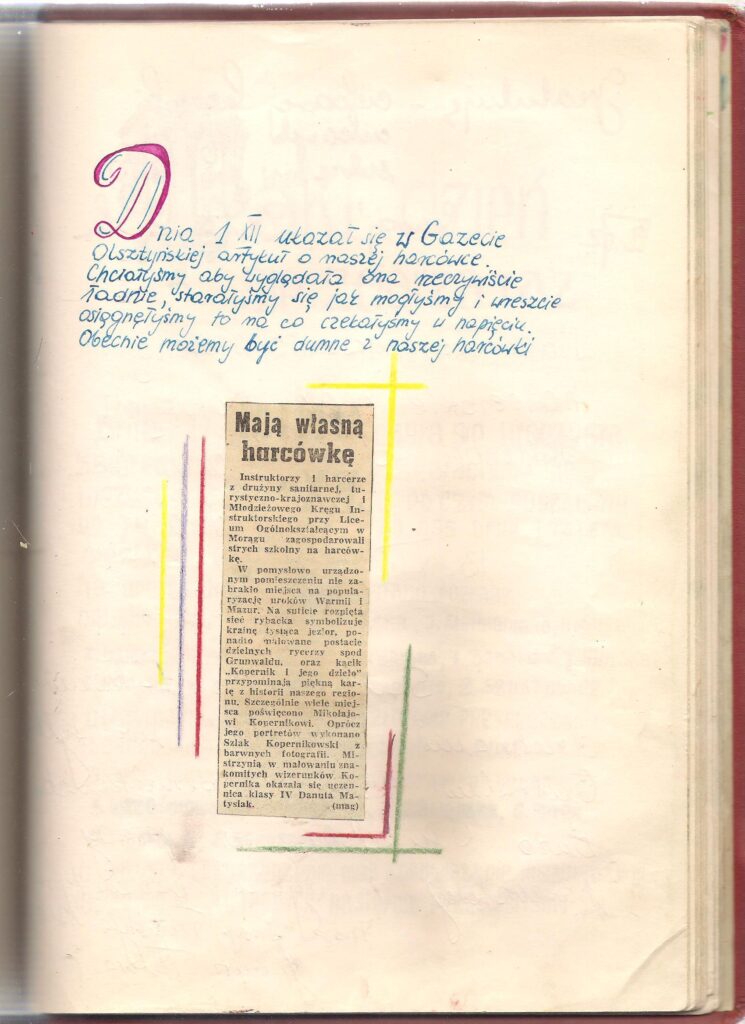 Dnia 1 XII ukazał się w Gazecie
Olsztyńskiej artykuł o naszej harcówce.
Chciałyśmy aby wyglądała ona rzeczywiście
ładnie, starałyśmy się jak mogłyśmy i wreszcie
osiągnęłyśmy to na co czekałyśmy w napięciu.
Obecnie możemy być dumne z naszej harcówki
Mają własną
harcówkę
Instruktorzy i harcerze
z drużyny sanitarnej, tu-
rystyczno-krajoznawczej i
Młodzieżowego Kręgu In-
struktorskiego przy Lice-
um Ogólnokształcącym w
Morągu zagospodarowali
strych szkolny na harców-
kę.
W pomysłowo urządzo-
nym pomieszczeniu nie za-
brakło miejsca na popula-
ryzację uroków Warmii i
Mazur. Na suficie rozpięta
sieć rybacka symbolizuje
krainę tysiąca jezior, po-
nadto malowane postacie
dzielnych rycerzy spod
Grunwaldu, oraz kącik
„Kopernik i jego dzieło"
przypominają piękną kar-
tę z historii naszego regio-
nu. Szczególnie wiele miej-
sca poświęcono Mikołajo-
wi Kopernikowi. Oprócz
jego portretów wykonano
Szlak Kopernikowski z
barwnych fotografii. Mi-
strzynią w malowaniu zna-
komitych wizerunków Ko-
pernika okazała się uczen-
nica klasy IV Danuta Ma-
tysiak. (mag)